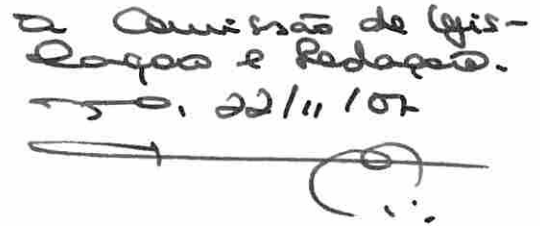 a Comissão de Legis-
lação e Redação.
22/11/07